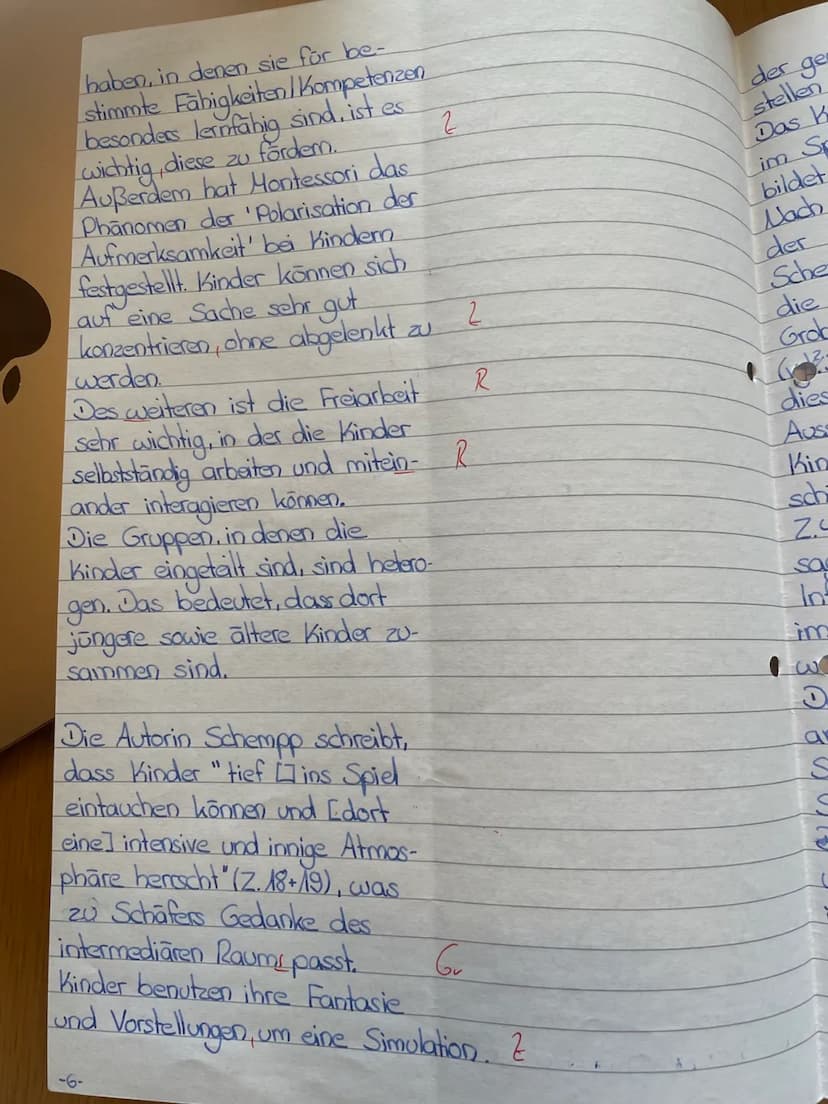 haben, in denen sie für be-
stimmte Fähigkeiten/Kompetenzen
besonders lernfähig sind, ist es
wichtig, diese zu fördern. Z
Außerdem hat Montessori das
Phänomen der 'Polarisation der
Aufmerksamkeit' bei Kindern
festgestellt. Kinder können sich
auf eine Sache sehr gut
konzentrieren, ohne abgelenkt zu Z
werden.
Des weiteren ist die Freiarbeit R
sehr wichtig, in der die Kinder
selbstständig arbeiten und mitein- R
ander interagieren können.
Die Gruppen, in denen die
Kinder eingeteilt sind, sind hetero-
gen. Das bedeutet, dass dort
jüngere sowie ältere Kinder zu-
sammen sind.
Die Autorin Schempp schreibt,
dass Kinder "tief [] ins Spiel
eintauchen können und [dort
eine] intensive und innige Atmos-
phäre herrscht" (Z. 18+19), was
zu Schäfers Gedanke des
intermediären Raums passt. Gr
Kinder benutzen ihre Fantasie
und Vorstellungen, um eine Simulation. Z
-6-
der ge
stellen
Das K
im Sp
bildet
Nach
der
Sche
die
dies
Aus
Kin
sch
Z.
sa
In
im
w
D
a
S
S